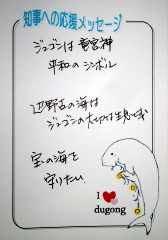 知事への応援メッセージ
ジュゴンは 竜宮神
平和の シンボル
辺野古の海は
ジュゴンの大切な生息域
宝の海を
守りたい
I ♥
dugong